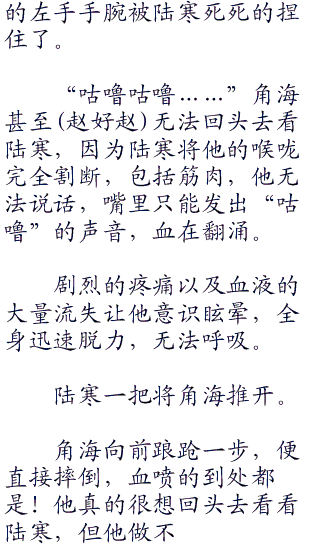 的左手手腕被陆寒死死的捏
住了。
“咕噜咕噜……” 角海
甚至(赵好赵)无法回头去看
陆寒，因为陆寒将他的喉咙
完全割断，包括筋肉，他无
法说话，嘴里只能发出“咕
噜”的声音，血在翻涌。
剧烈的疼痛以及血液的
大量流失让他意识眩晕，全
身迅速脱力，无法呼吸。
陆寒一把将角海推开。
角海向前踉跄一步，便
直接摔倒，血喷的到处都
是！他真的很想回头去看看
陆寒，但他做不